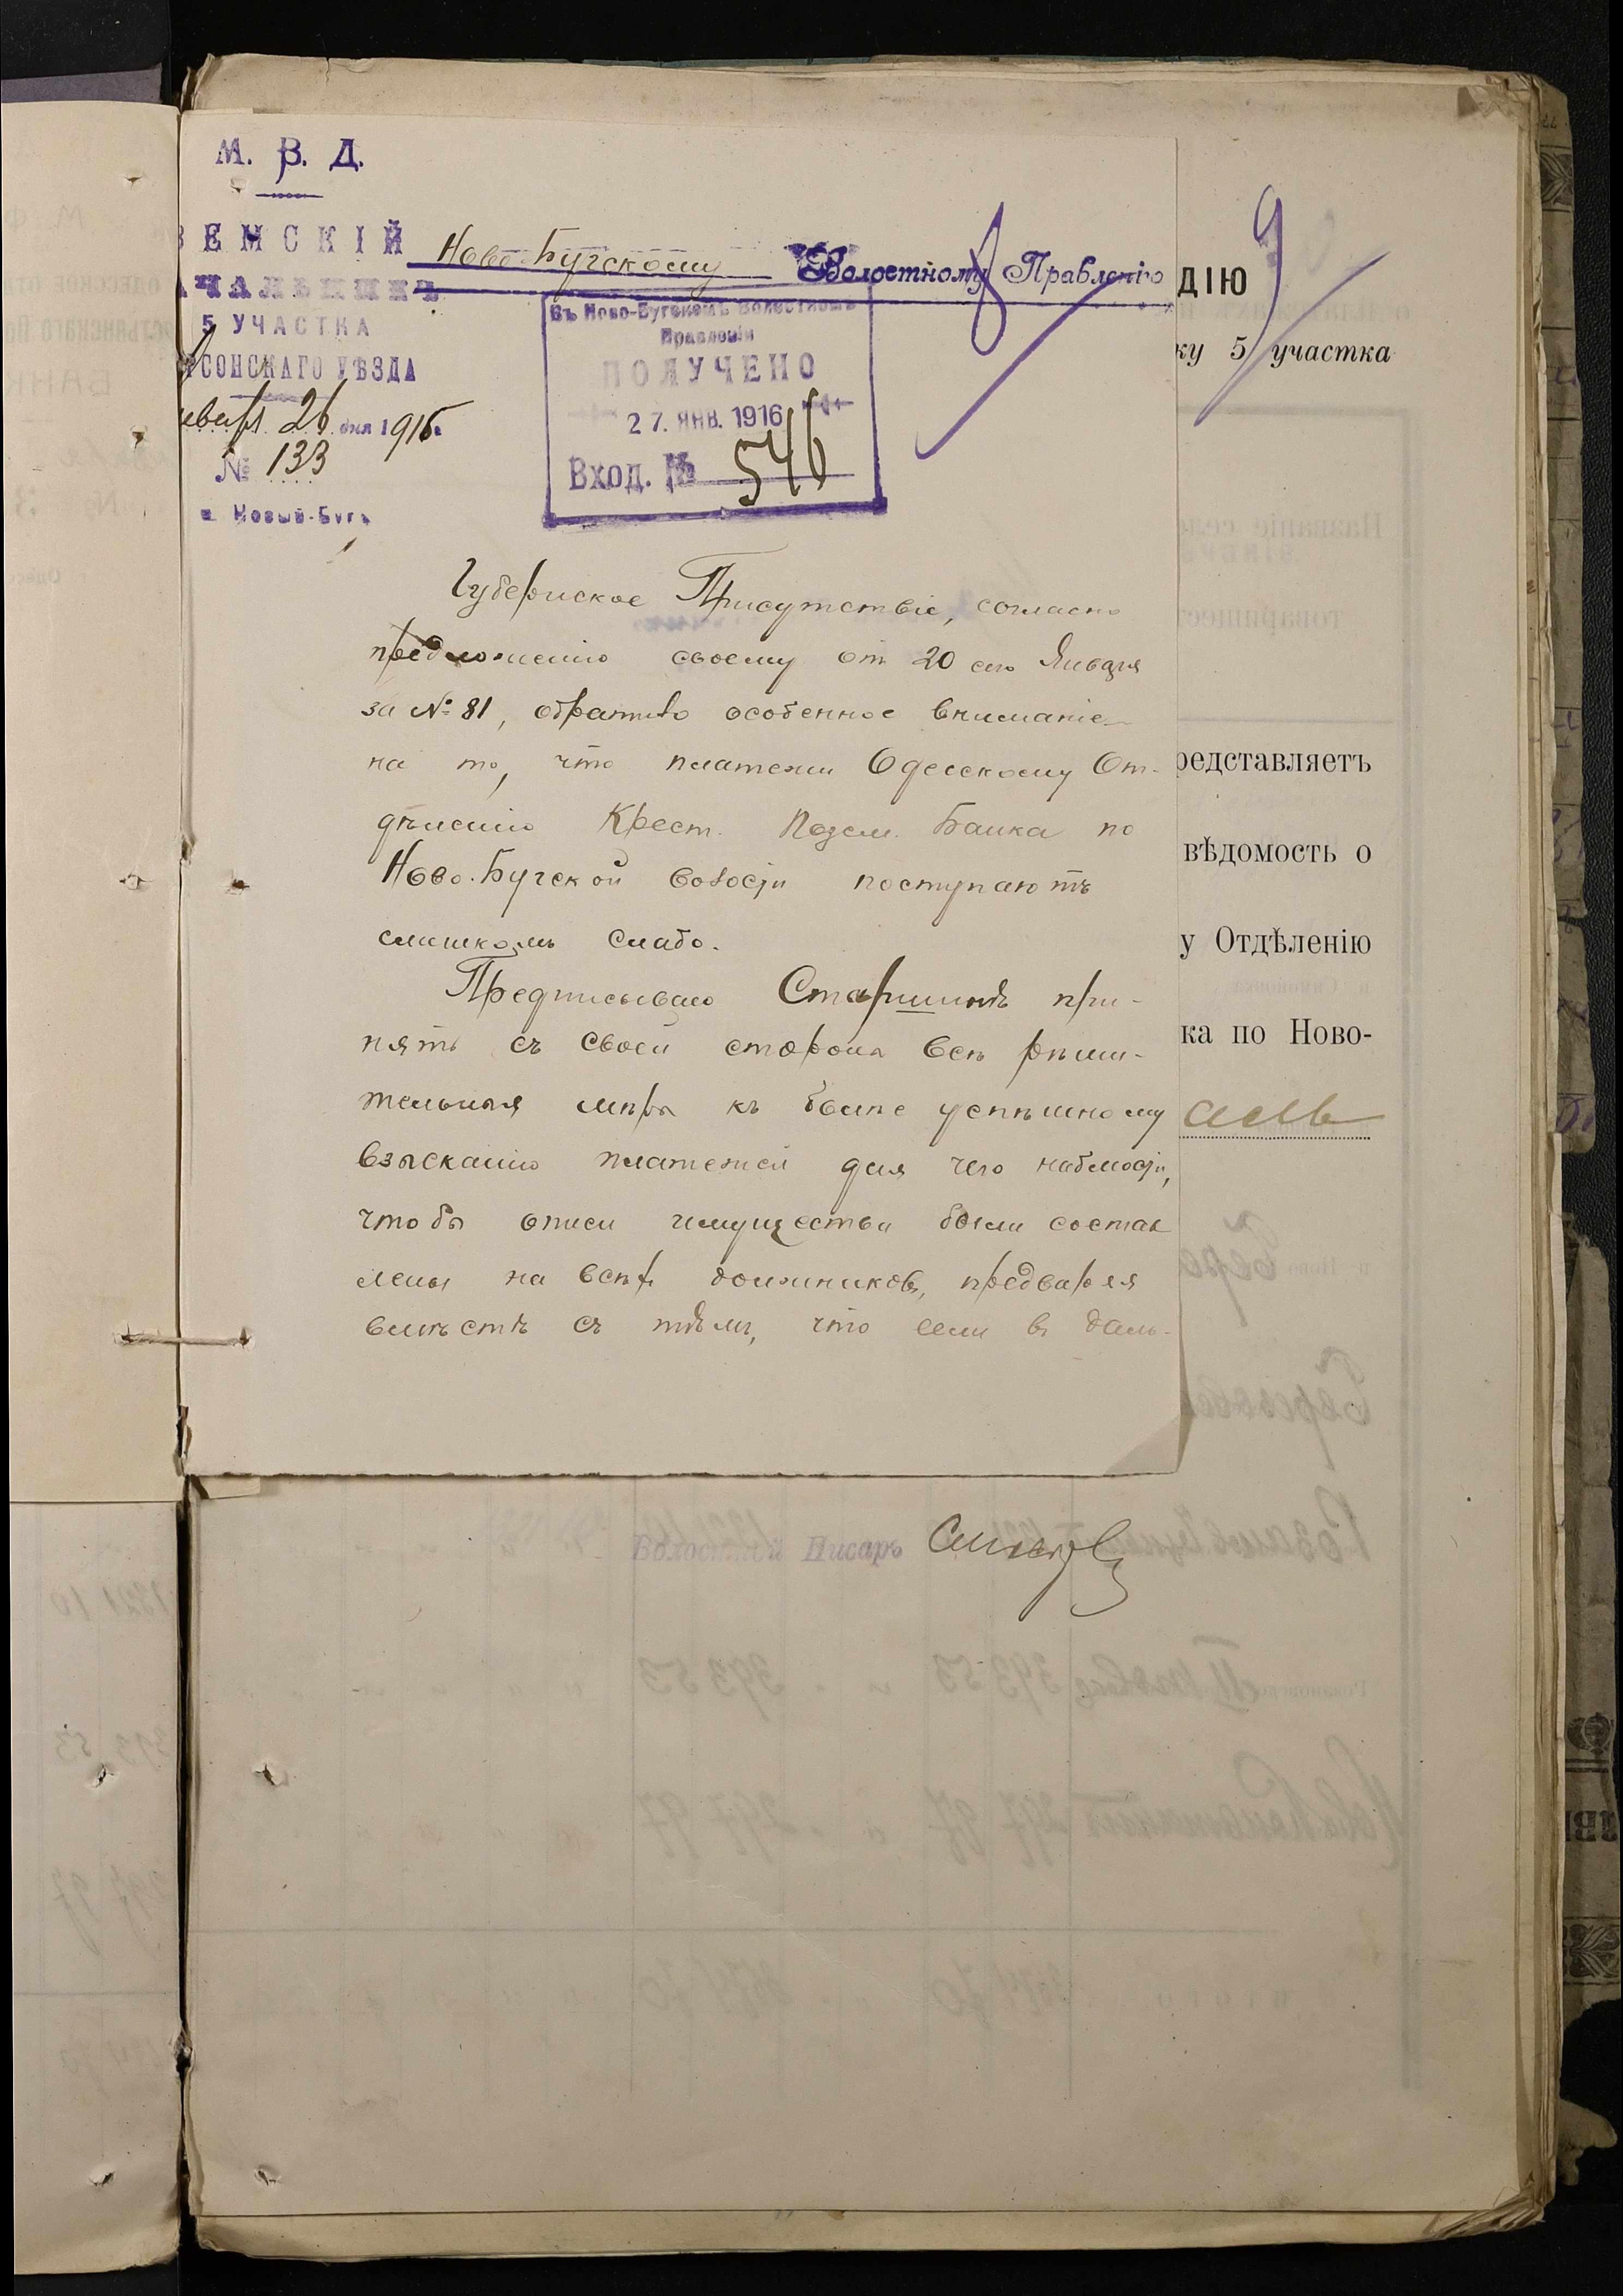 М. В. Д.
ЗЕМСКІЙ
НАЧАЛЬНИКЪ
5 УЧАСТКА
ХЕРСОНСКАГО УѢЗДА
Января 26 дня 1916
№ 133
Новый-Бугъ
Ново-Бугскому Волостному Правленію
8
Въ Ново-Бугскомъ Волостномъ
Правленіи
ПОЛУЧЕНО
27. ЯНВ. 1916
Вход. № 546
Губернское Присутствіе, согласно
предложенію своему отъ 20 сего Января
за № 81, обратило особенное вниманіе
на то, что платежи Одесскому От-
дѣленію Крест. Позем. Банка по
Ново-Бугской волости поступаютъ
слишкомъ слабо.
Предписываю Старшинѣ при-
нять съ своей стороны всѣ рѣши-
тельныя мѣры къ болѣе успѣшному
взысканію платежей для чего наблюсти,
чтобы описи имущества были состав
лены на всѣхъ должниковъ, предваряя
вмѣстѣ съ тѣмъ, что если въ даль-
9
ДІЮ
ку 5 участка
редставляетъ
вѣдомость о
у Отдѣленію
ка по Ново-
Волостной Писарь